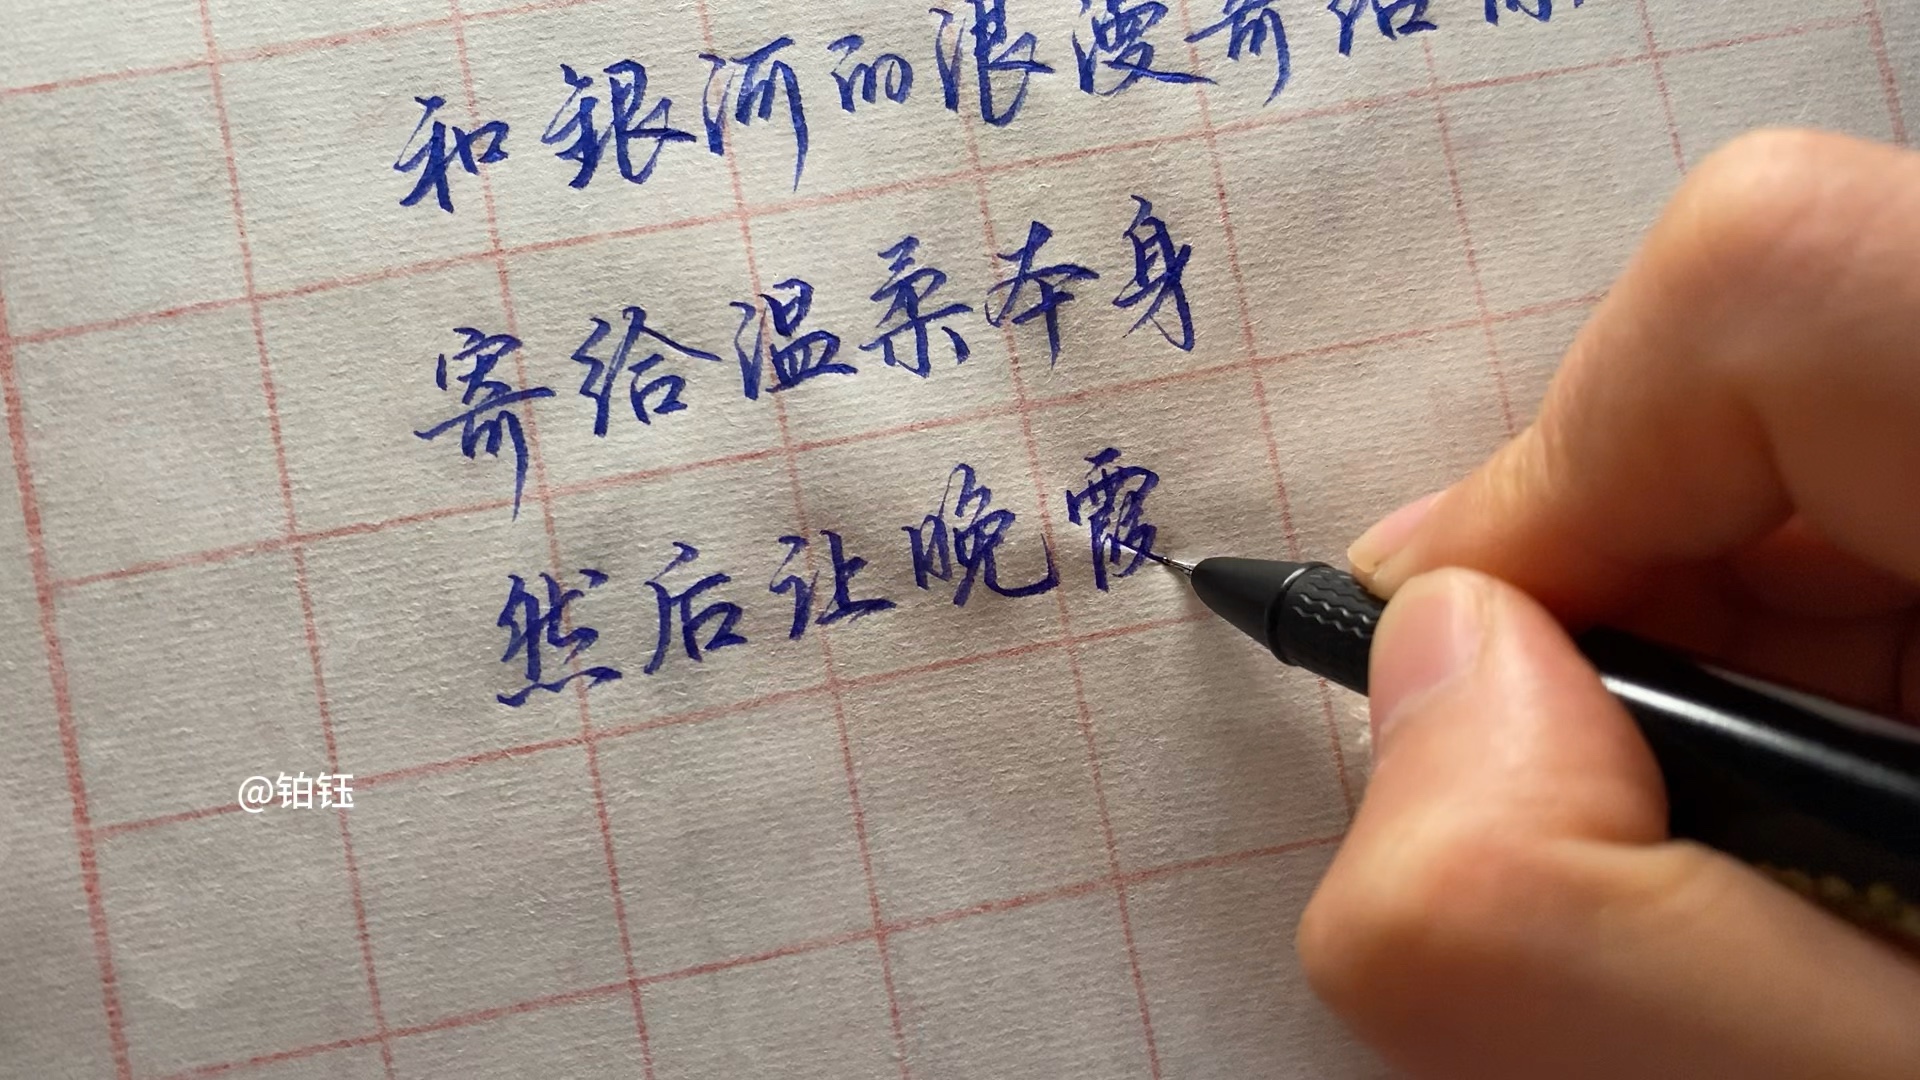 和銀河的浪漫寄给你
寄给温柔本身
然后让晚霞
@铂钰